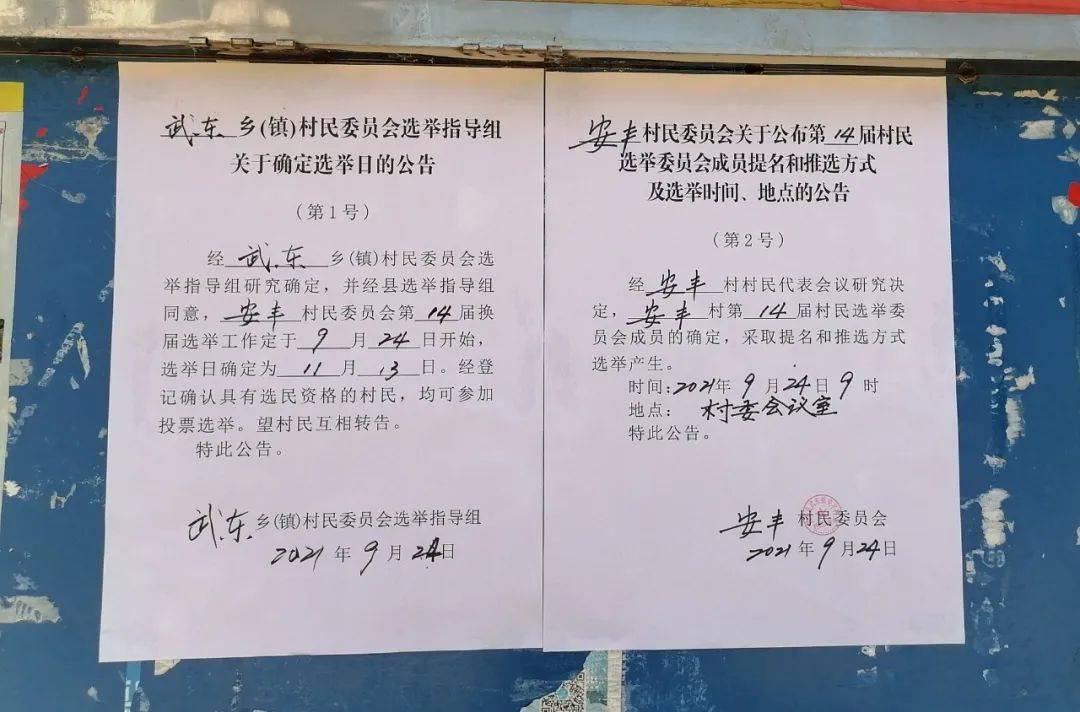 武东乡(镇)村民委员会选举指导组
关于确定选举日的公告
(第1号)
经武东乡(镇)村民委员会选
举指导组研究确定，并经县选举指导组
同意，安丰村民委员会第14届换
届选举工作定于9月24日开始，
选举日确定为11月13日。经登
记确认具有选民资格的村民，均可参加
投票选举。望村民互相转告。
特此公告。
武东乡(镇)村民委员会选举指导组
2021年9月24日
安丰村民委员会关于公布第14届村民
选举委员会成员提名和推选方式
及选举时间、地点的公告
(第2号)
经安丰村村民代表会议研究决
定，安丰村第14届村民选举委
员会成员的确定，采取提名和推选方式
选举产生。
时间:2021年9月24日9时
地点：村委会议室
特此公告。
安丰村民委员会
2021年9月24日